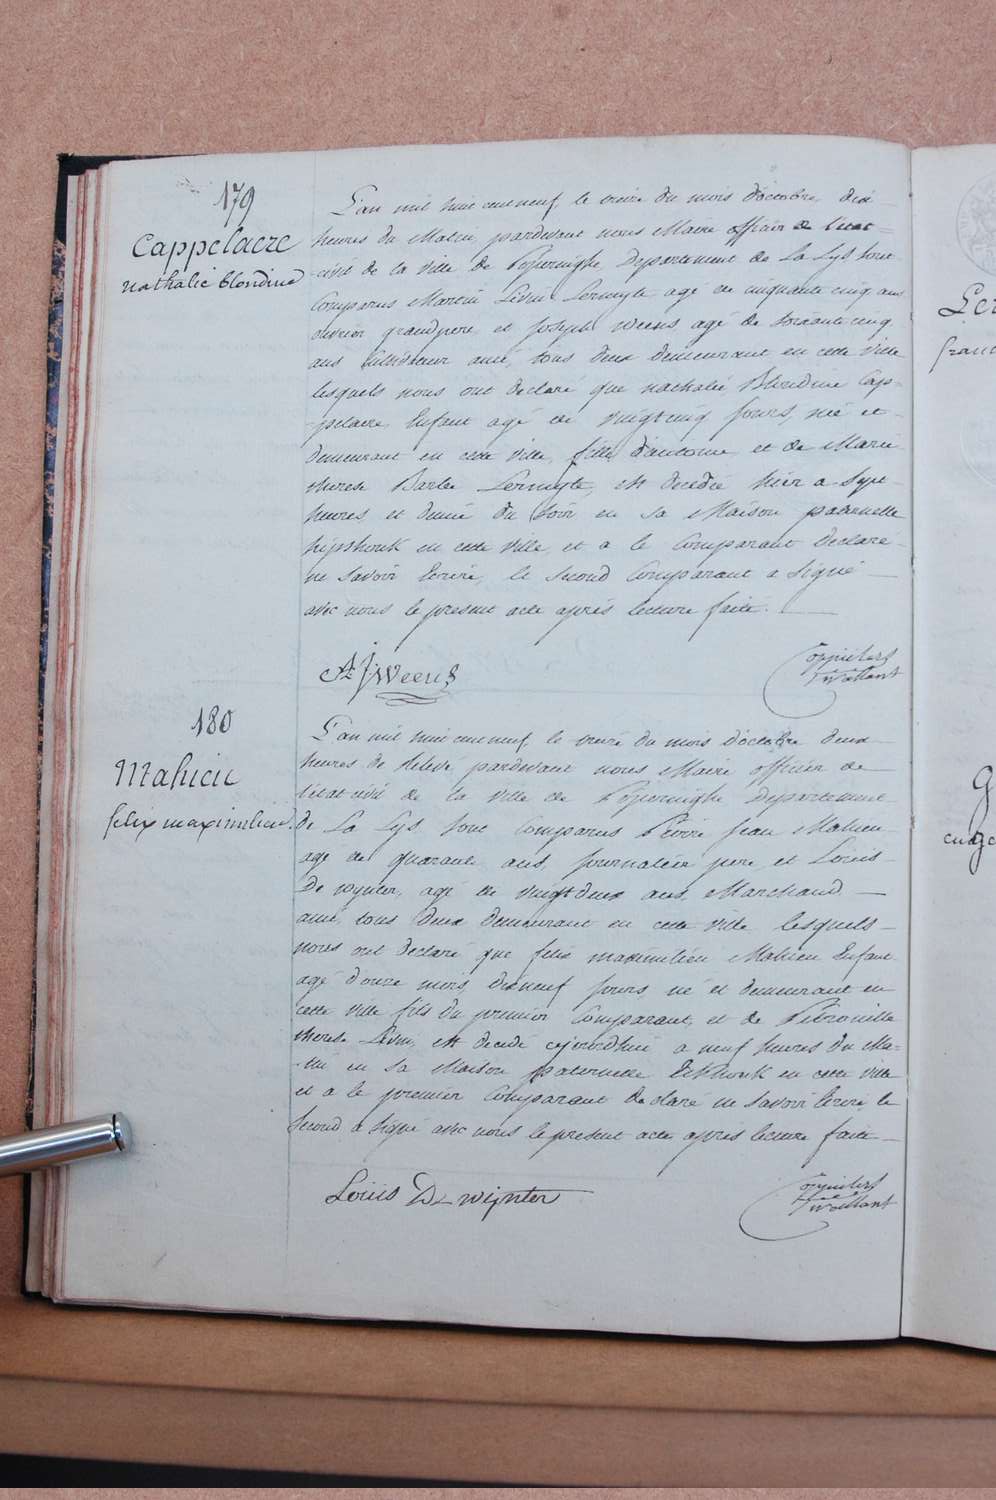 179
Cappelaere
Nathalie blondine
L'an mil huit cent neuf, le treize du mois d'octobre, dix
heures du Matin, pardevant nous Maire officier de l'état=
civil de la ville de Poperinghe Departement de La Lys sont
Comparus Martin Levin Lermyte agé de cinquante cinq ans
ouvrier grandpere, et Joseph Weens, agé de soixante cinq
ans ami, tous deux demeurant en cette ville
lesquels nous ont declaré que nathalie Blondine Cap=
=pelaere Enfant agé de vingtcinq jours, née et
demeurant en cette ville, fille d'antoine et de Marie
therese Barbe Lermyte, est decedée hier a Sept
heures et demie du soir en sa Maison paternelle
en cette ville, et a le Comparant declaré
ne savoir Ecrire, le second Comparant a signé
avec nous le present acte après lecture faite.
At J Weens
180
Mahieu
felix maximilien.
L'an mil huit cent neuf, le treize du mois d'octobre deux
heures de relevé, pardevant nous Maire officier de
l'état civil de la ville de Poperinghe Departement
de La Lys, sont Comparus Pierre Jean Mahieu
agé de quarante ans, journalier pere, et Louis
De wynter, agé de vingt deux ans, Marchand
ami, tous deux demeurant en cette ville lesquels
nous ont declaré que felix maximilien Mahieu Enfant
agé d'onze mois, dixneuf jours, né et demeurant en
cette ville fils du premier Comparant, et de Petronille
therese Levin, est decedé cejourdhui a neuf heures du Ma=
=tin en sa Maison paternelle en cette ville
et a le premier Comparant declaré ne savoir Ecrire, le
second a signé avec nous le present acte après lecture faite
Louis De wynter